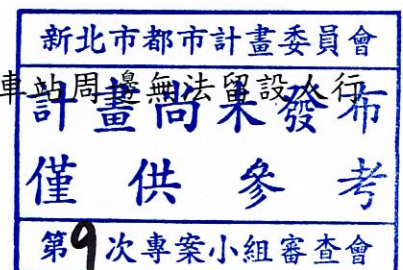 新北市都市計畫委員會
車站周邊無法留設人行
計畫尚未發布
僅供參考
第9次專案小組審查會